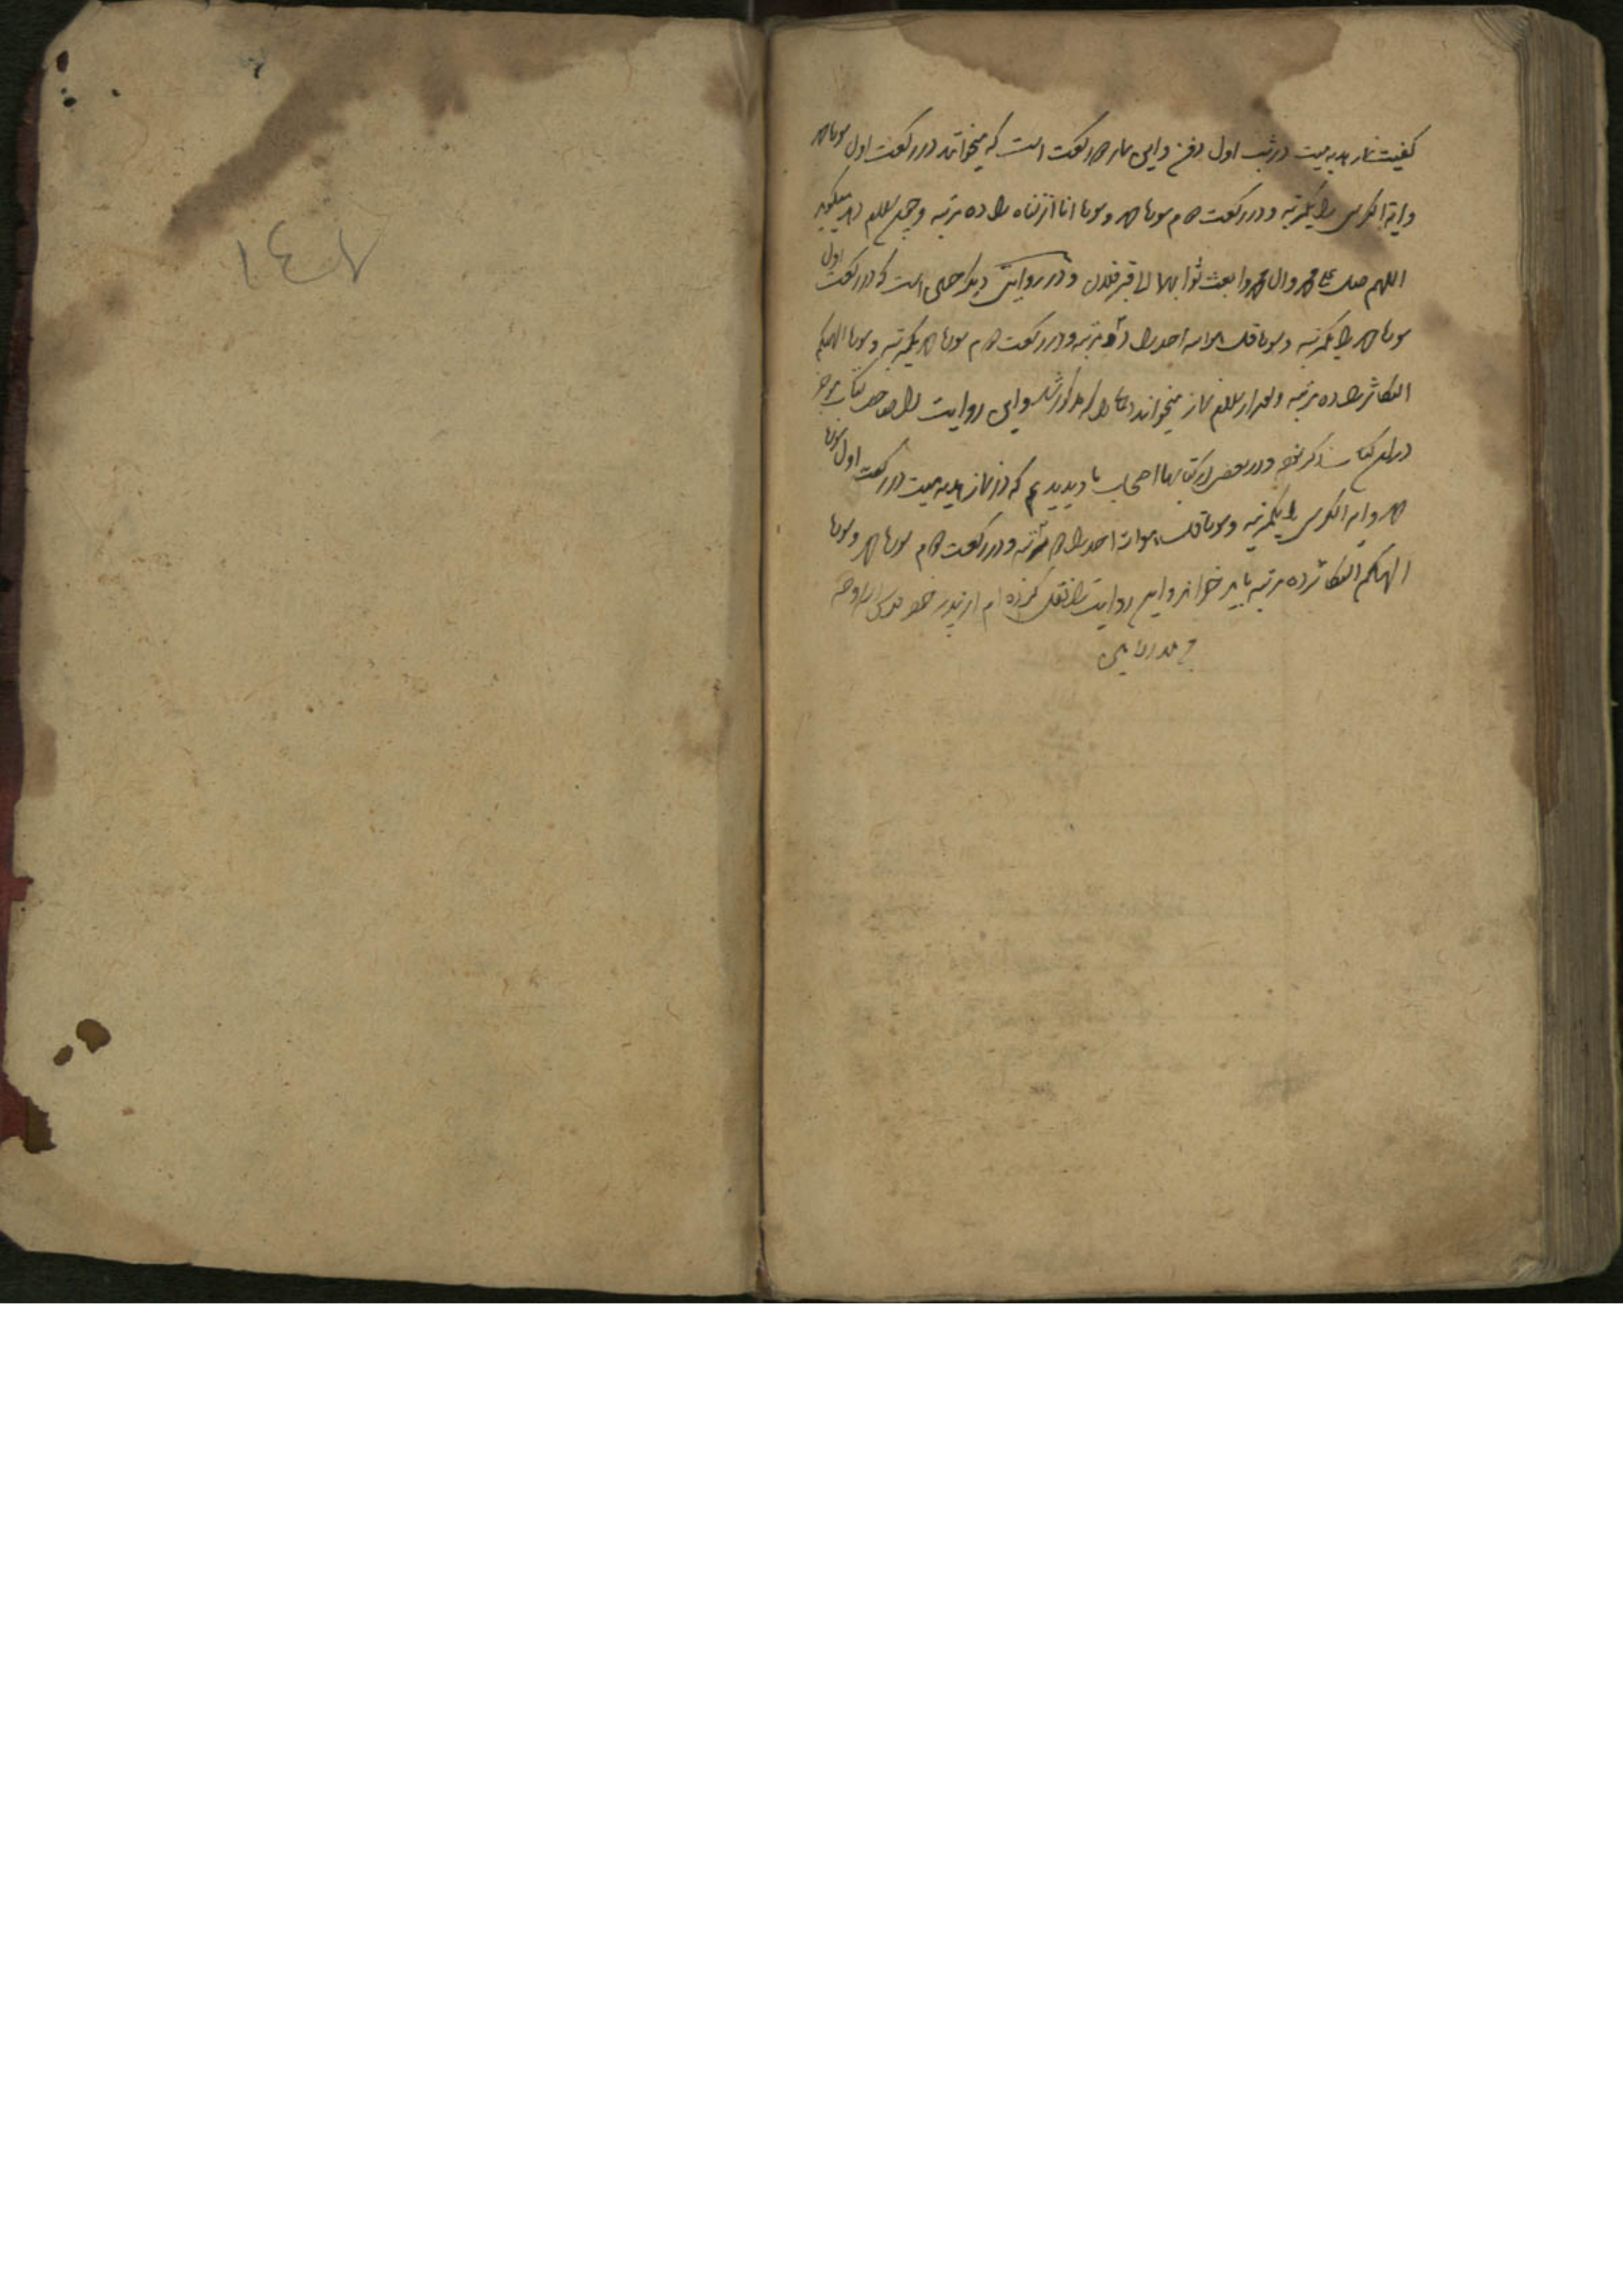 کیفیت نماز هدیه میت در شب اول دفن و این نماز دو رکعت است که میخواند در رکعت اول سوره حمد
و ایة الکرسی را یکمرتبه و در رکعت دوم سوره حمد و سوره انا انزلناه را ده مرتبه و چون سلام دهد میگوید
اللهم صل علی محمد وال محمد وابعث ثوابها الی قبر فلان و در روایتی دیگر چنین است که در رکعت اول
سوره حمد را یکمرتبه و سوره قل هو الله احد را دو مرتبه و در رکعت دوم سوره حمد یکمرتبه و سوره الهیکم
التکاثر را ده مرتبه و بعد از سلام نماز میخواند دعای را که مذکور شد و این روایت را صاحب کتاب
در این کتاب ذکر نموده و در بعضی از کتابهای اصحاب ما دیدیم که در نماز هدیه میت در رکعت اول سوره
حمد و ایة الکرسی را یکمرتبه و سوره قل هو الله احد را دو مرتبه و در رکعت دوم سوره حمد و سوره
الهیکم التکاثر ده مرتبه باید خواند و این روایت را نقل کرده ام از پدر خود قدس الله روحه
١٤٧